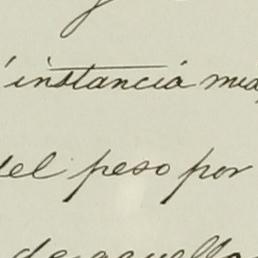 instancia
del peso por
de aquella